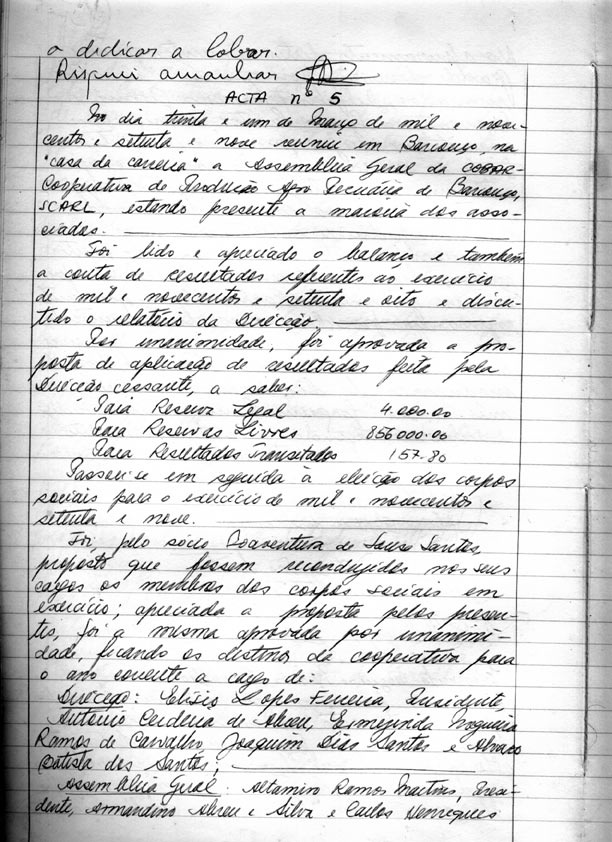 a dedicar a lobar.
Risquei amanhar
ACTA nº 5
No dia trinta e um de Março de mil e nove-
centos e setenta e nove reuniu em Barcouço, na
"casa da carreira" a Assembleia Geral da COBAR-
Cooperativa de Produção Agro Pecuária de Barcouço,
SCARL, estando presente a maioria dos asso-
ciados.
Foi lido e apreciado o balanço e também
a conta de resultados referentes ao exercício
de mil e novecentos e setenta e oito e discu-
tido o relatório da Direcção
Por unanimidade, foi aprovada a pro-
posta de aplicação de resultados feita pela
Direcção cessante, a saber:
Para Reserva Legal 4.000.00
Para Reservas Livres 856000.00
Para Resultados Transitados 157.80
Passou-se em seguida à eleição dos corpos
sociais para o exercício de mil e novecentos e
setenta e nove.
Foi, pelo sócio Boaventura de Sousa Santos,
proposto que fossem reconduzidos nos seus
cargos os membros dos corpos sociais em
exercício; apreciada a proposta pelos presen-
tes, foi a mesma aprovada por unanimi-
dade, ficando os destinos da cooperativa para
o ano corrente a cargo de:
Direcção: Elísio Lopes Ferreira, Presidente,
António Cerdeira de Abreu, Ermezinda Nogueira
Ramos de Carvalho, Joaquim Dias Santos e Alvaro
Batista dos Santos;
Assembleia Geral: Altamiro Ramos Martins, Presi-
dente, Armandino Abreu e Silva e Carlos Henriques